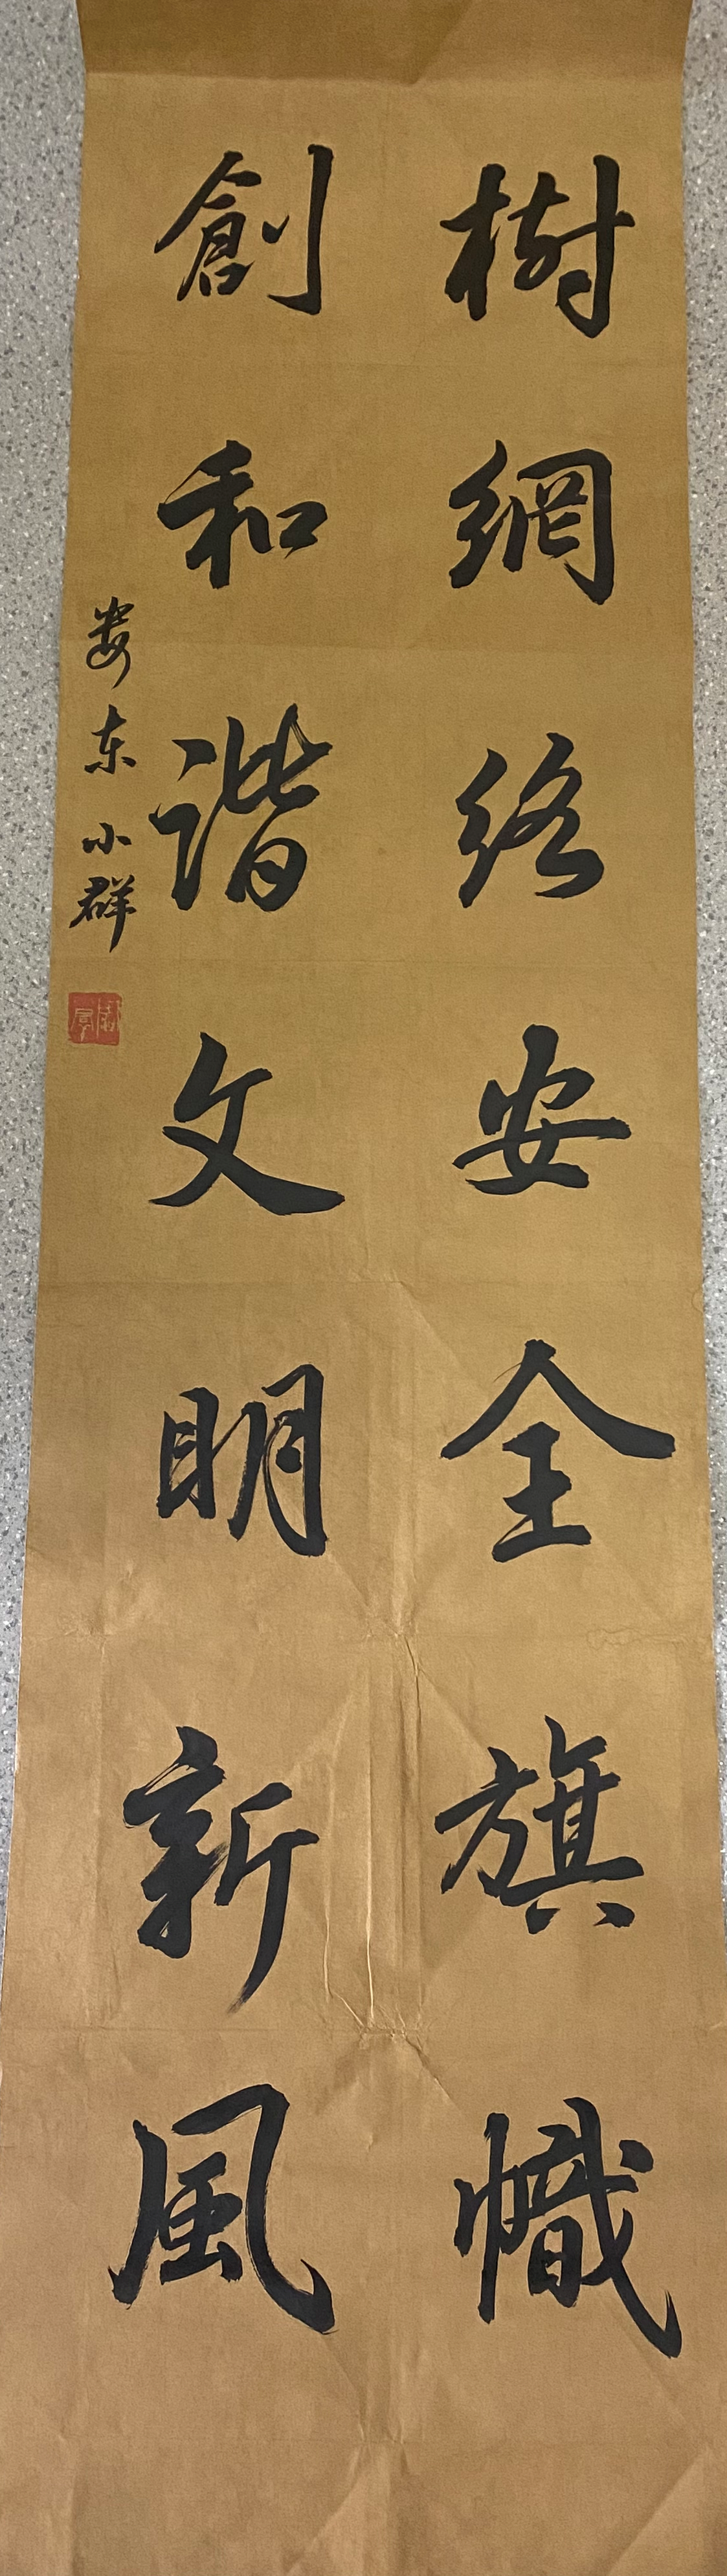 樹網絡安全旗幟
創和諧文明新風
娄东小群